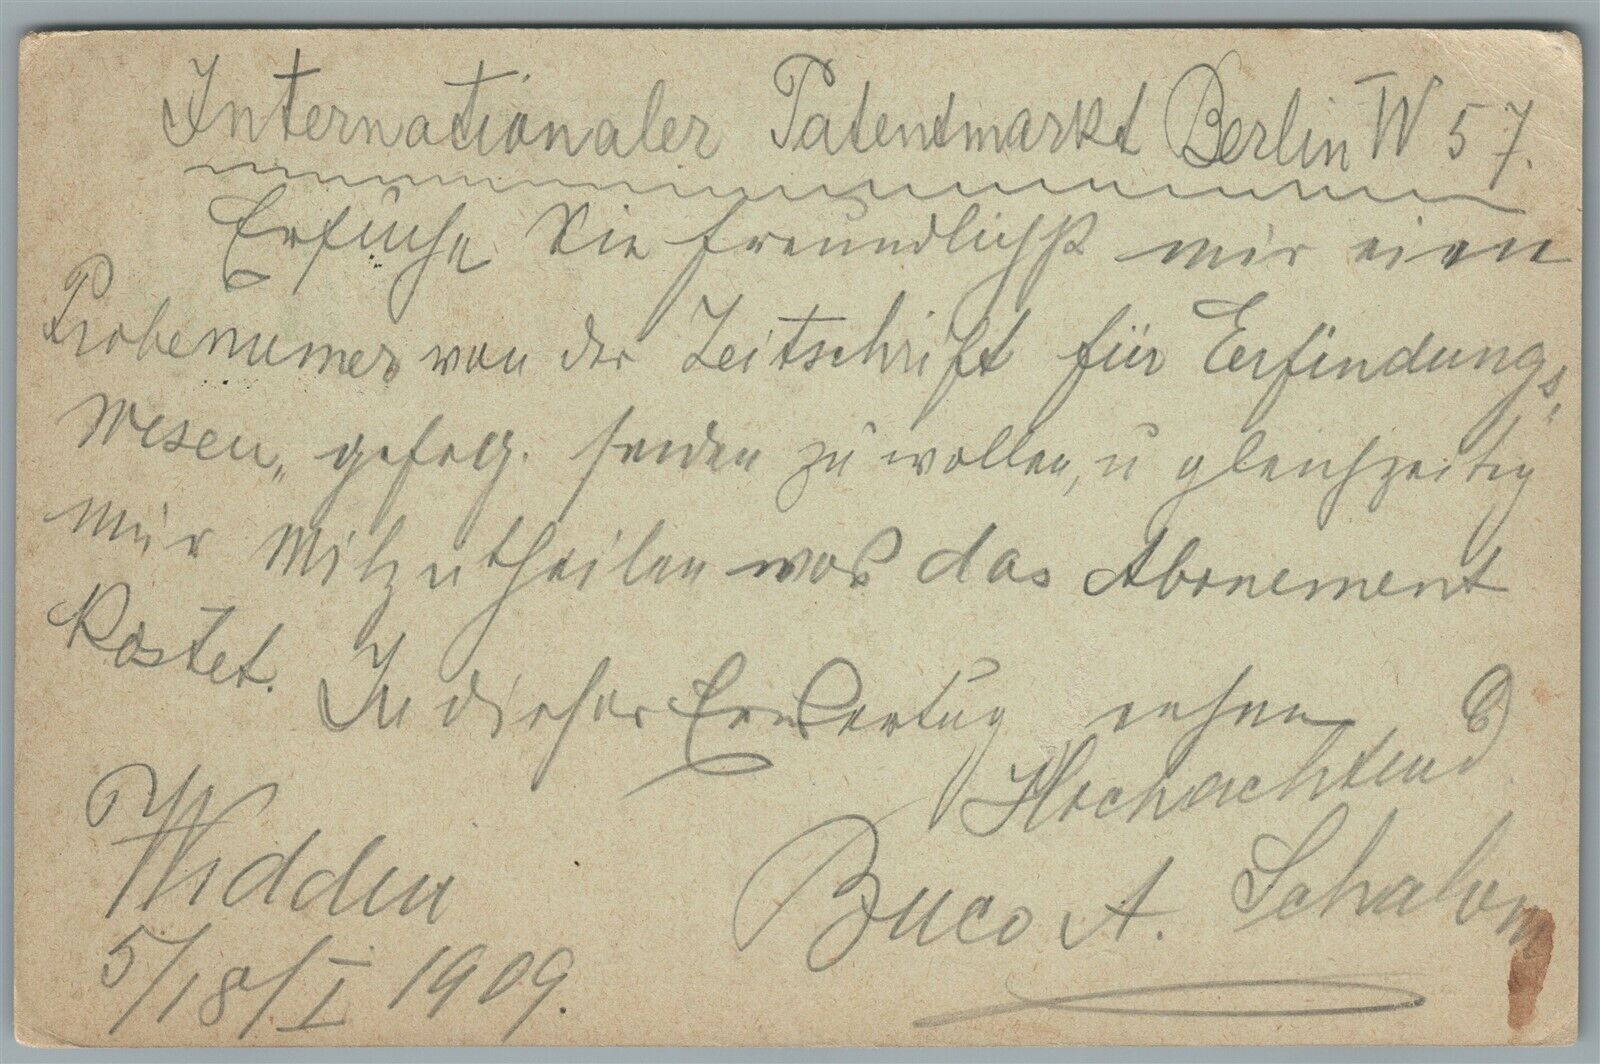 Internationaler Patentmarkt Berlin W 57.
Ersuche Sie freundlichst mir einen
Probenumer von der Zeitschrift für Erfindungs,
wesen„ gefelg. senden zu wollen, u gleichzeitig
mir Mitzutheilen was das Abonement
kostet. In dieser Erwartug
Hochachtend
Widdin Buco A. Schalom
5/18/I 1909.